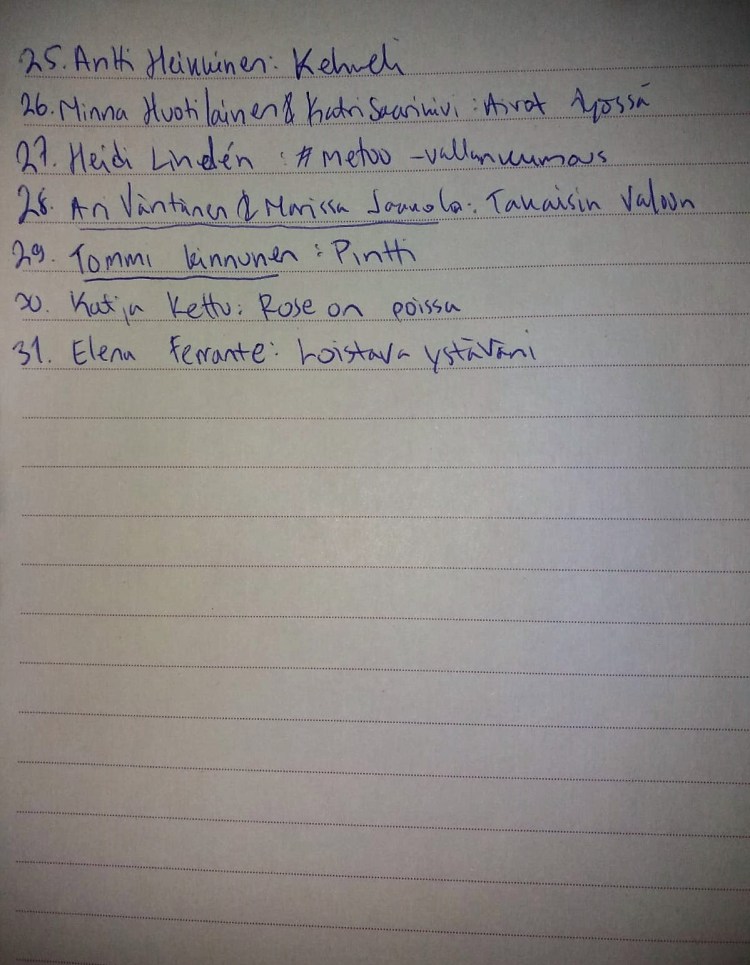 25. Antti Heikkinen: Kehveli
26. Minna Huotilainen & Katri Saarikivi: Aivot työssä
27. Heidi Lindén: #metoo -vallankumous
28. Ari Väntänen & Marissa Jaakola: Takaisin valoon
29. Tommi Kinnunen: Pintti
30. Katja Kettu: Rose on poissa
31. Elena Ferrante: Loistava ystäväni